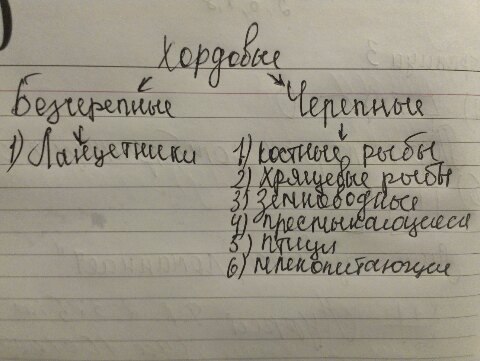 Хордовые
Безчерепные Черепные
1) Ланцетники 1) костные рыбы
2) хрящевые рыбы
3) земноводные
4) пресмыкающиеся
5) птицы
6) млекопитающие